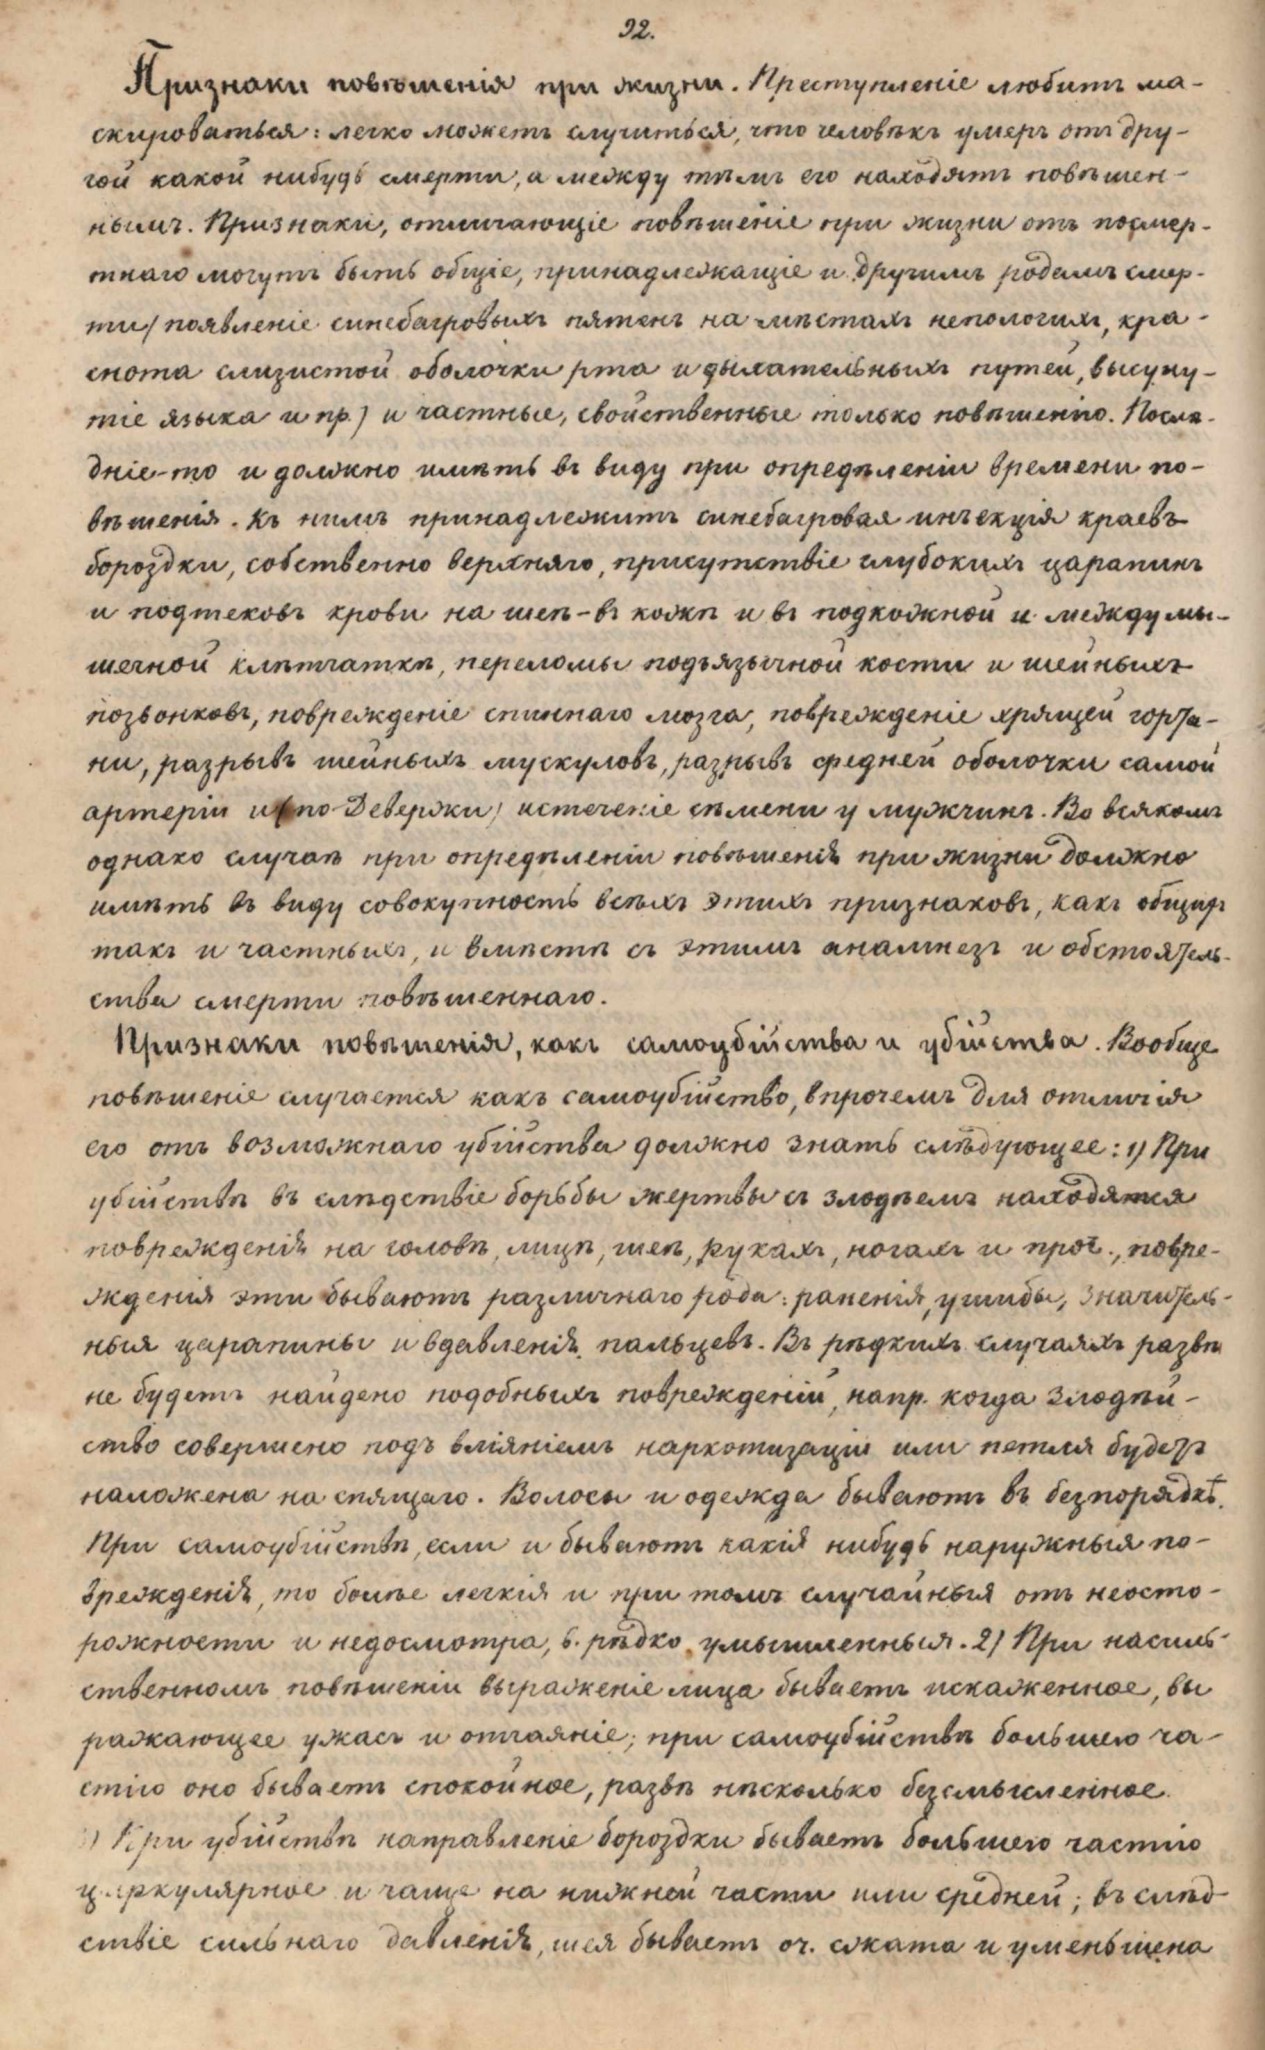 92.
Признаки повѣшенія при жизни. Преступленіе любитъ ма-
скироваться: легко можетъ случиться, что человѣкъ умеръ отъ дру-
гой какой нибудь смерти, а между тѣмъ его находятъ повѣшен-
нымъ. Признаки, отличающіе повѣшеніе при жизни отъ посмер-
тнаго могутъ быть общіе, принадлежащіе и другимъ родамъ смер-
ти /появленіе синебагровыхъ пятенъ на мѣстахъ непологихъ, кра-
снота слизистой оболочки рта и дыхательныхъ путей, высуну-
тіе языка и пр./ и частные, свойственные только повѣшенію. Послѣ-
дніе-то и должно имѣть въ виду при опредѣленіи времени по-
вѣшенія. Къ нимъ принадлежитъ синебагровая инъекція краевъ
бороздки, собственно верхняго, присутствіе глубокихъ царапинъ
и подтековъ крови на шеѣ-въ кожѣ и въ подкожной и между мы-
шечной клѣтчаткѣ, переломы подъязычной кости и шейныхъ
позвонковъ, поврежденіе спиннаго мозга, поврежденіе хрящей горта-
ни, разрывъ шейныхъ мускуловъ, разрывъ средней оболочки самой
артеріи и (по Девержи) истеченіе сѣмени у мужчинъ. Во всякомъ
однако случаѣ при опредѣленіи повѣшенія при жизни должно
имѣть въ виду совокупность всѣхъ этихъ признаковъ, какъ общихъ
такъ и частныхъ, и вмѣстѣ съ этимъ анамнезъ и обстоятель-
ства смерти повѣшеннаго.
Признаки повѣшенія, какъ самоубійства и убійства. Вообще
повѣшеніе случается какъ самоубійство, впрочемъ для отличія
его отъ возможнаго убійства должно знать слѣдующее: 1) При
убійствѣ въ слѣдствіе борьбы жертвы съ злодѣемъ находятся
поврежденія на головѣ, лицѣ, шеѣ, рукахъ, ногахъ и проч., повре-
жденія эти бываютъ различнаго рода: раненія, ушибы, значитель-
ныя царапины и вдавленія пальцевъ. Въ рѣдкихъ случаяхъ развѣ
не будетъ найдено подобныхъ поврежденій, напр. когда злодѣй-
ство совершено подъ вліяніемъ наркотизаціи или петля будетъ
наложена на спящаго. Волосы и одежда бываютъ въ безпорядкѣ.
При самоубійствѣ, если и бываютъ какія нибудь наружныя по-
врежденія, то болѣе легкія и при томъ случайныя отъ неосто-
рожности и недосмотра, б. рѣдко умышленныя. 2) При насиль-
ственномъ повѣшеніи выраженіе лица бываетъ искаженное, вы
ражающее ужасъ и отчаяніе; при самоубійствѣ большею ча-
стію оно бываетъ спокойное, развѣ нѣсколько безсмысленное.
3) При убійствѣ направленіе бороздки бываетъ большею частію
циркулярное и чаще на нижней части или средней; въ слѣд
ствіе сильнаго давленія, шея бываетъ оч. сжата и уменьшена